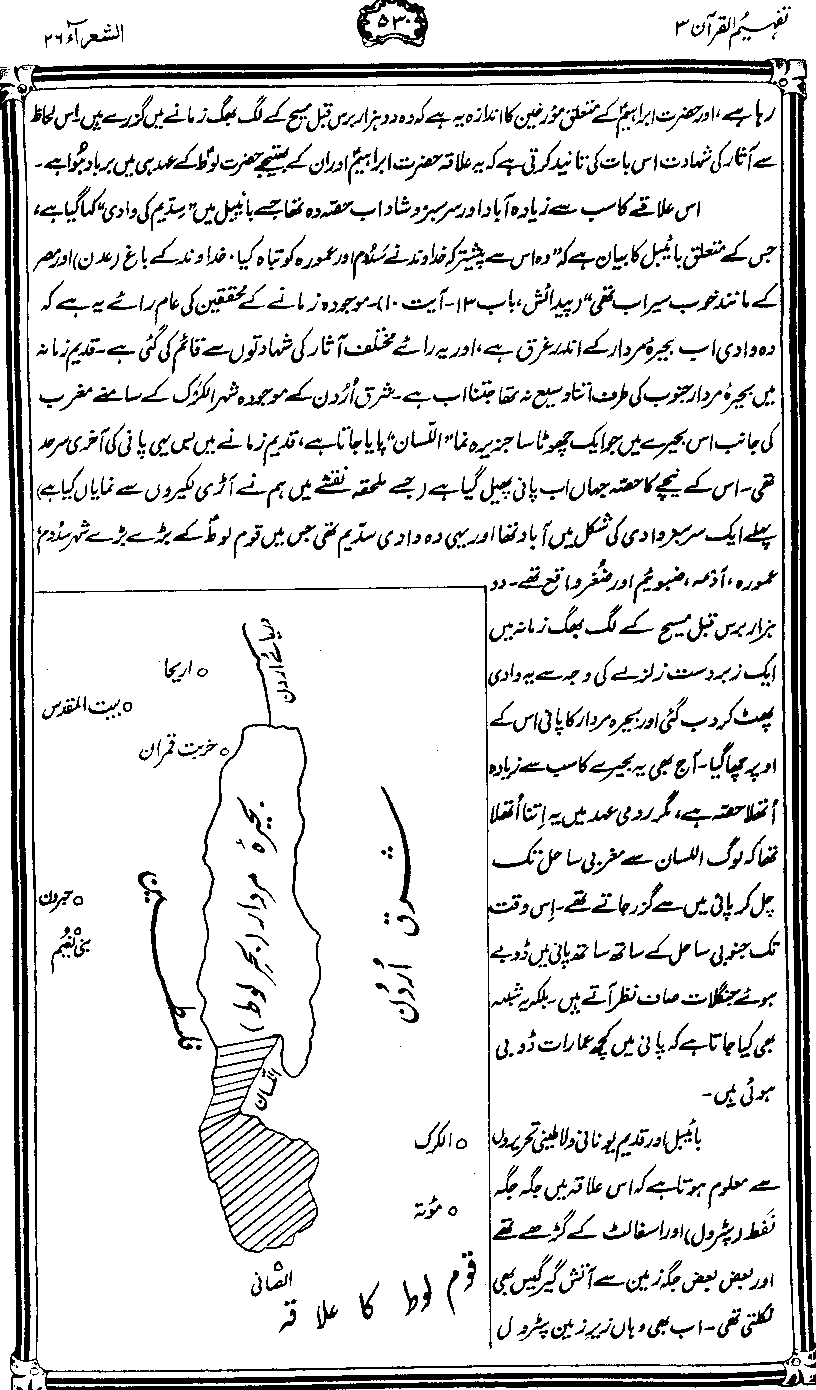 تفہیم القرآن ۳
۵۳۰
الشعرآء ۲۶
رہا ہے، اور حضرت ابراہیمؑ کے متعلق مؤرخین کا اندازہ یہ ہے کہ وہ دو ہزار برس قبل مسیح کے لگ بھگ زمانے میں گزرے ہیں۔ اس لحاظ
سے آثار کی شہادت اس بات کی تائید کرتی ہے کہ یہ علاقہ حضرت ابراہیمؑ اور ان کے بھتیجے حضرت لوطؑ کے عہد ہی میں برباد ہوا ہے۔
اس علاقے کا سب سے زیادہ آباد اور سرسبز و شاداب حصّہ وہ تھا جسے بائیبل میں ”سدّیم کی وادی“ کہا گیا ہے،
جس کے متعلق بائیبل کا بیان ہے کہ ”وہ اس سے پیشتر کہ خداوند نے سُدُوم اور عمورہ کو تباہ کیا، خداوند کے باغ (عدن) اور مصر
کے مانند خوب سیراب تھی“ (پیدائش، باب ۱۳- آیت ۱۰)۔ موجودہ زمانے کے محققین کی عام رائے یہ ہے کہ
وہ وادی اب بحیرۂ مردار کے اندر غرق ہے، اور یہ رائے مختلف آثار کی شہادتوں سے قائم کی گئی ہے۔ قدیم زمانہ
میں بحیرۂ مردار جنوب کی طرف اتنا وسیع نہ تھا جتنا اب ہے۔ شرق اُردن کے موجودہ شہر الکَرَک کے سامنے مغرب
کی جانب اس بحیرے میں جو ایک چھوٹا سا جزیرہ نما ”اللّسان“ پایا جاتا ہے، قدیم زمانے میں بس یہی پانی کی آخری سرحد
تھی۔ اس کے نیچے کا حصّہ جہاں اب پانی پھیل گیا ہے (جسے ملحقہ نقشے میں ہم نے آڑی لکیروں سے نمایاں کیا ہے)
پہلے ایک سرسبز وادی کی شکل میں آباد تھا اور یہی وہ وادی سدّیم تھی جس میں قوم لوطؑ کے بڑے بڑے شہر سدُوم،
عمورہ، اَدْمَہ، ضبوئیم اور ضُغَر واقع تھے۔ دو
ہزار برس قبل مسیح کے لگ بھگ زمانہ میں
ایک زبردست زلزلے کی وجہ سے یہ وادی
پھٹ کر دب گئی اور بحیرۂ مردار کا پانی اس کے
اوپر چھا گیا۔ آج بھی یہ بحیرے کا سب سے زیادہ
اُتھلا حصّہ ہے، مگر رومی عہد میں یہ اِتنا اُتھلا
تھا کہ لوگ اللسان سے مغربی ساحل تک
چل کر پانی میں سے گزر جاتے تھے۔ اِس وقت
تک جنوبی ساحل کے ساتھ ساتھ پانی میں ڈوبے
ہوئے جنگلات صاف نظر آتے ہیں۔ بلکہ یہ شبہ
بھی کیا جاتا ہے کہ پانی میں کچھ عمارات ڈوبی
ہوئی ہیں۔
بائیبل اور قدیم یونانی و لاطینی تحریروں
سے معلوم ہوتا ہے کہ اس علاقہ میں جگہ جگہ
نَفط (پٹرول) اور اسفالٹ کے گڑھے تھے
اور بعض بعض جگہ زمین سے آتش گیر گیس بھی
نکلتی تھی۔ اب بھی وہاں زیر زمین پٹرول
دریائے اردن
اریحا
بیت المقدس
خربت قمران
بحیرۂ مردار (بحرِ لوط)
شرق اُردُن
فلسطین
حبرون
بنی نعیم
اللسان
الکرک
مؤتہ
الصّافی
قوم لوط کا علاقہ